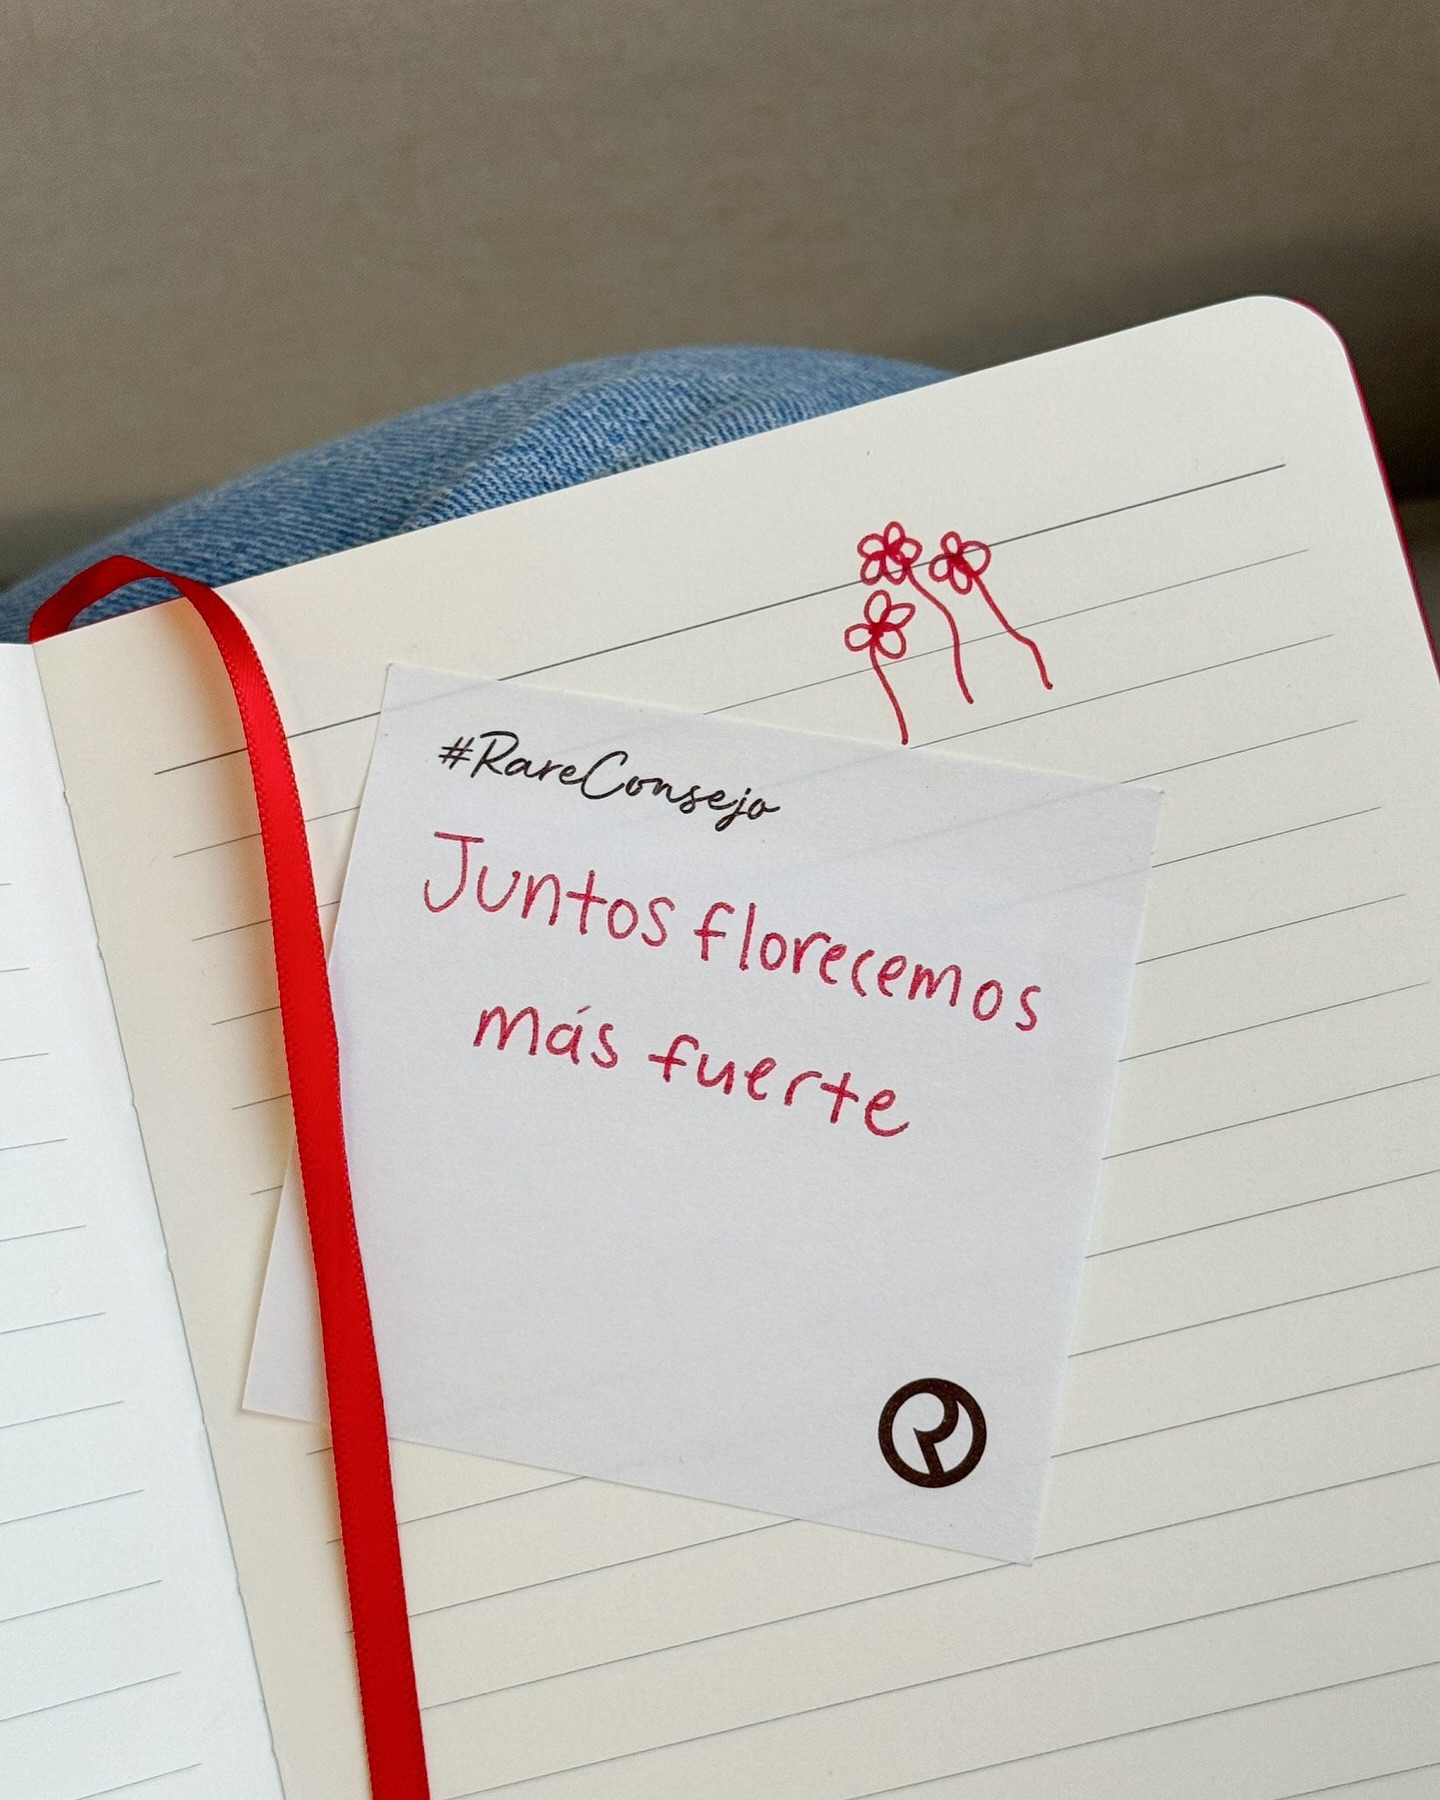 #RareConsejo
Juntos florecemos
más fuerte
R